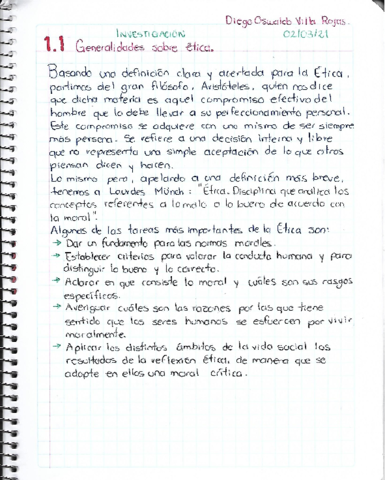 Diego Oswaldo Villa Rojas.
INVESTIGACIÓN 02/03/21
1.1 Generalidades sobre ética.
Basando una definición clara y acertada para la Ética,
partimos del gran filósofo, Aristóteles, quien nos dice
que dicha materia es aquel compromiso efectivo del
hombre que lo debe llevar a su perfeccionamiento personal.
Este compromiso se adquiere con uno mismo de ser siempre
más persona. Se refiere a una decisión interna y libre
que no representa una simple aceptación de lo que otros
piensan dicen y hacen.
Lo mismo pero, apelando a una definición más breve,
tenemos a Lourdes Münch: "Ética. Disciplina que analiza los
conceptos referentes a lo malo o lo bueno de acuerdo con
la moral".
Algunas de las tareas más importantes de la Ética son:
→ Dar un fundamento para las normas morales.
→ Establecer criterios para valorar la conducta humana y para
distinguir lo bueno y lo correcto.
→ Aclarar en que consiste lo moral y cuáles son sus rasgos
específicos.
→ Averiguar cuáles son las razones por las que tiene
sentido que los seres humanos se esfuercen por vivir
moralmente.
→ Aplicar los distintos ámbitos de la vida social los
resultados de la reflexión ética, de manera que se
adopte en ellos una moral crítica.